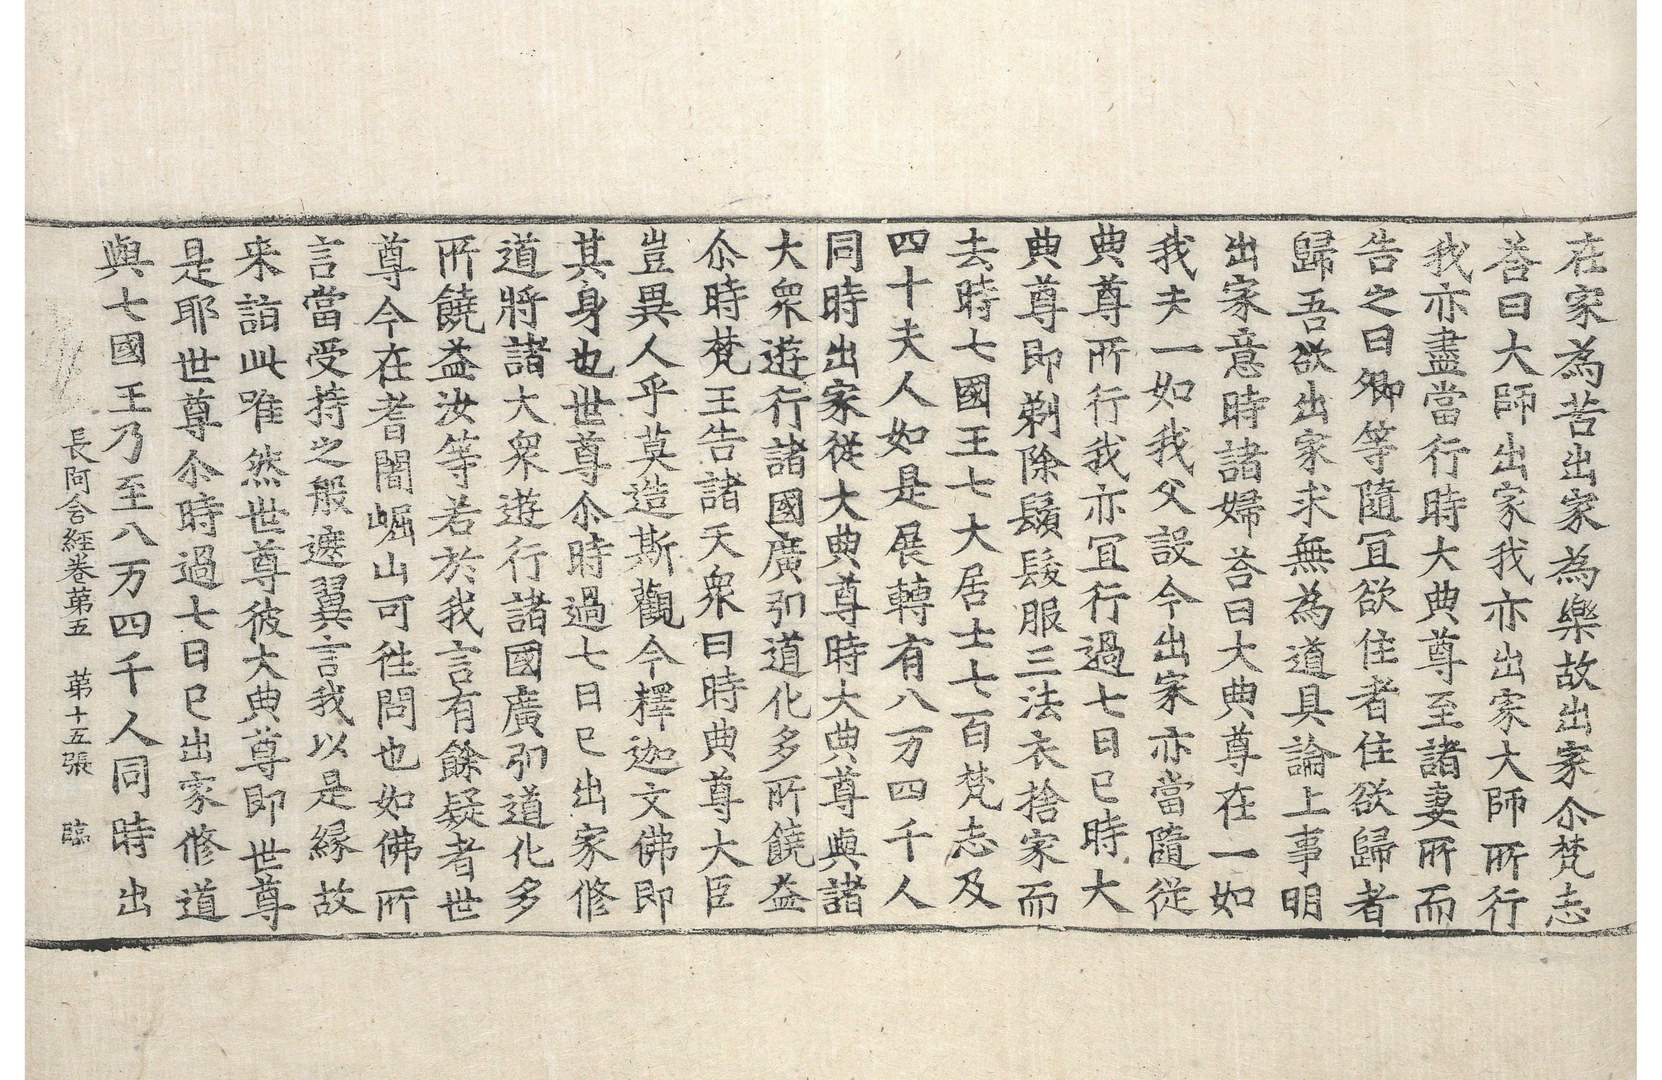 在家為苦出家為樂故出家尒梵志
荅曰大師出家我亦出家大師所行
我亦盡當行時大典尊至諸妻所而
告之曰卿等隨冝欲住者住欲歸者
歸吾欲出家求無為道具論上事明
出家意時諸婦荅曰大典尊在一如
我夫一如我父設今出家亦當隨從
典尊所行我亦冝行過七日已時大
典尊即剃除鬚髮服三法衣捨家而
去時七國王七大居士七百梵志及
四十夫人如是展轉有八万四千人
同時出家從大典尊時大典尊與諸
大衆遊行諸國廣引道化多所饒益
尒時梵王告諸天衆曰時典尊大臣
豈異人乎莫造斯觀今釋迦文佛即
其身也世尊尒時過七日已出家修
道將諸大衆遊行諸國廣引道化多
所饒益汝等若於我言有餘疑者世
尊今在耆闍崛山可徃問也如佛所
言當受持之般遮翼言我以是縁故
来詣此唯然世尊彼大典尊即世尊
是耶世尊尒時過七日已出家修道
與七國王乃至八万四千人同時出
長阿含經卷苐五 苐十五張 臨